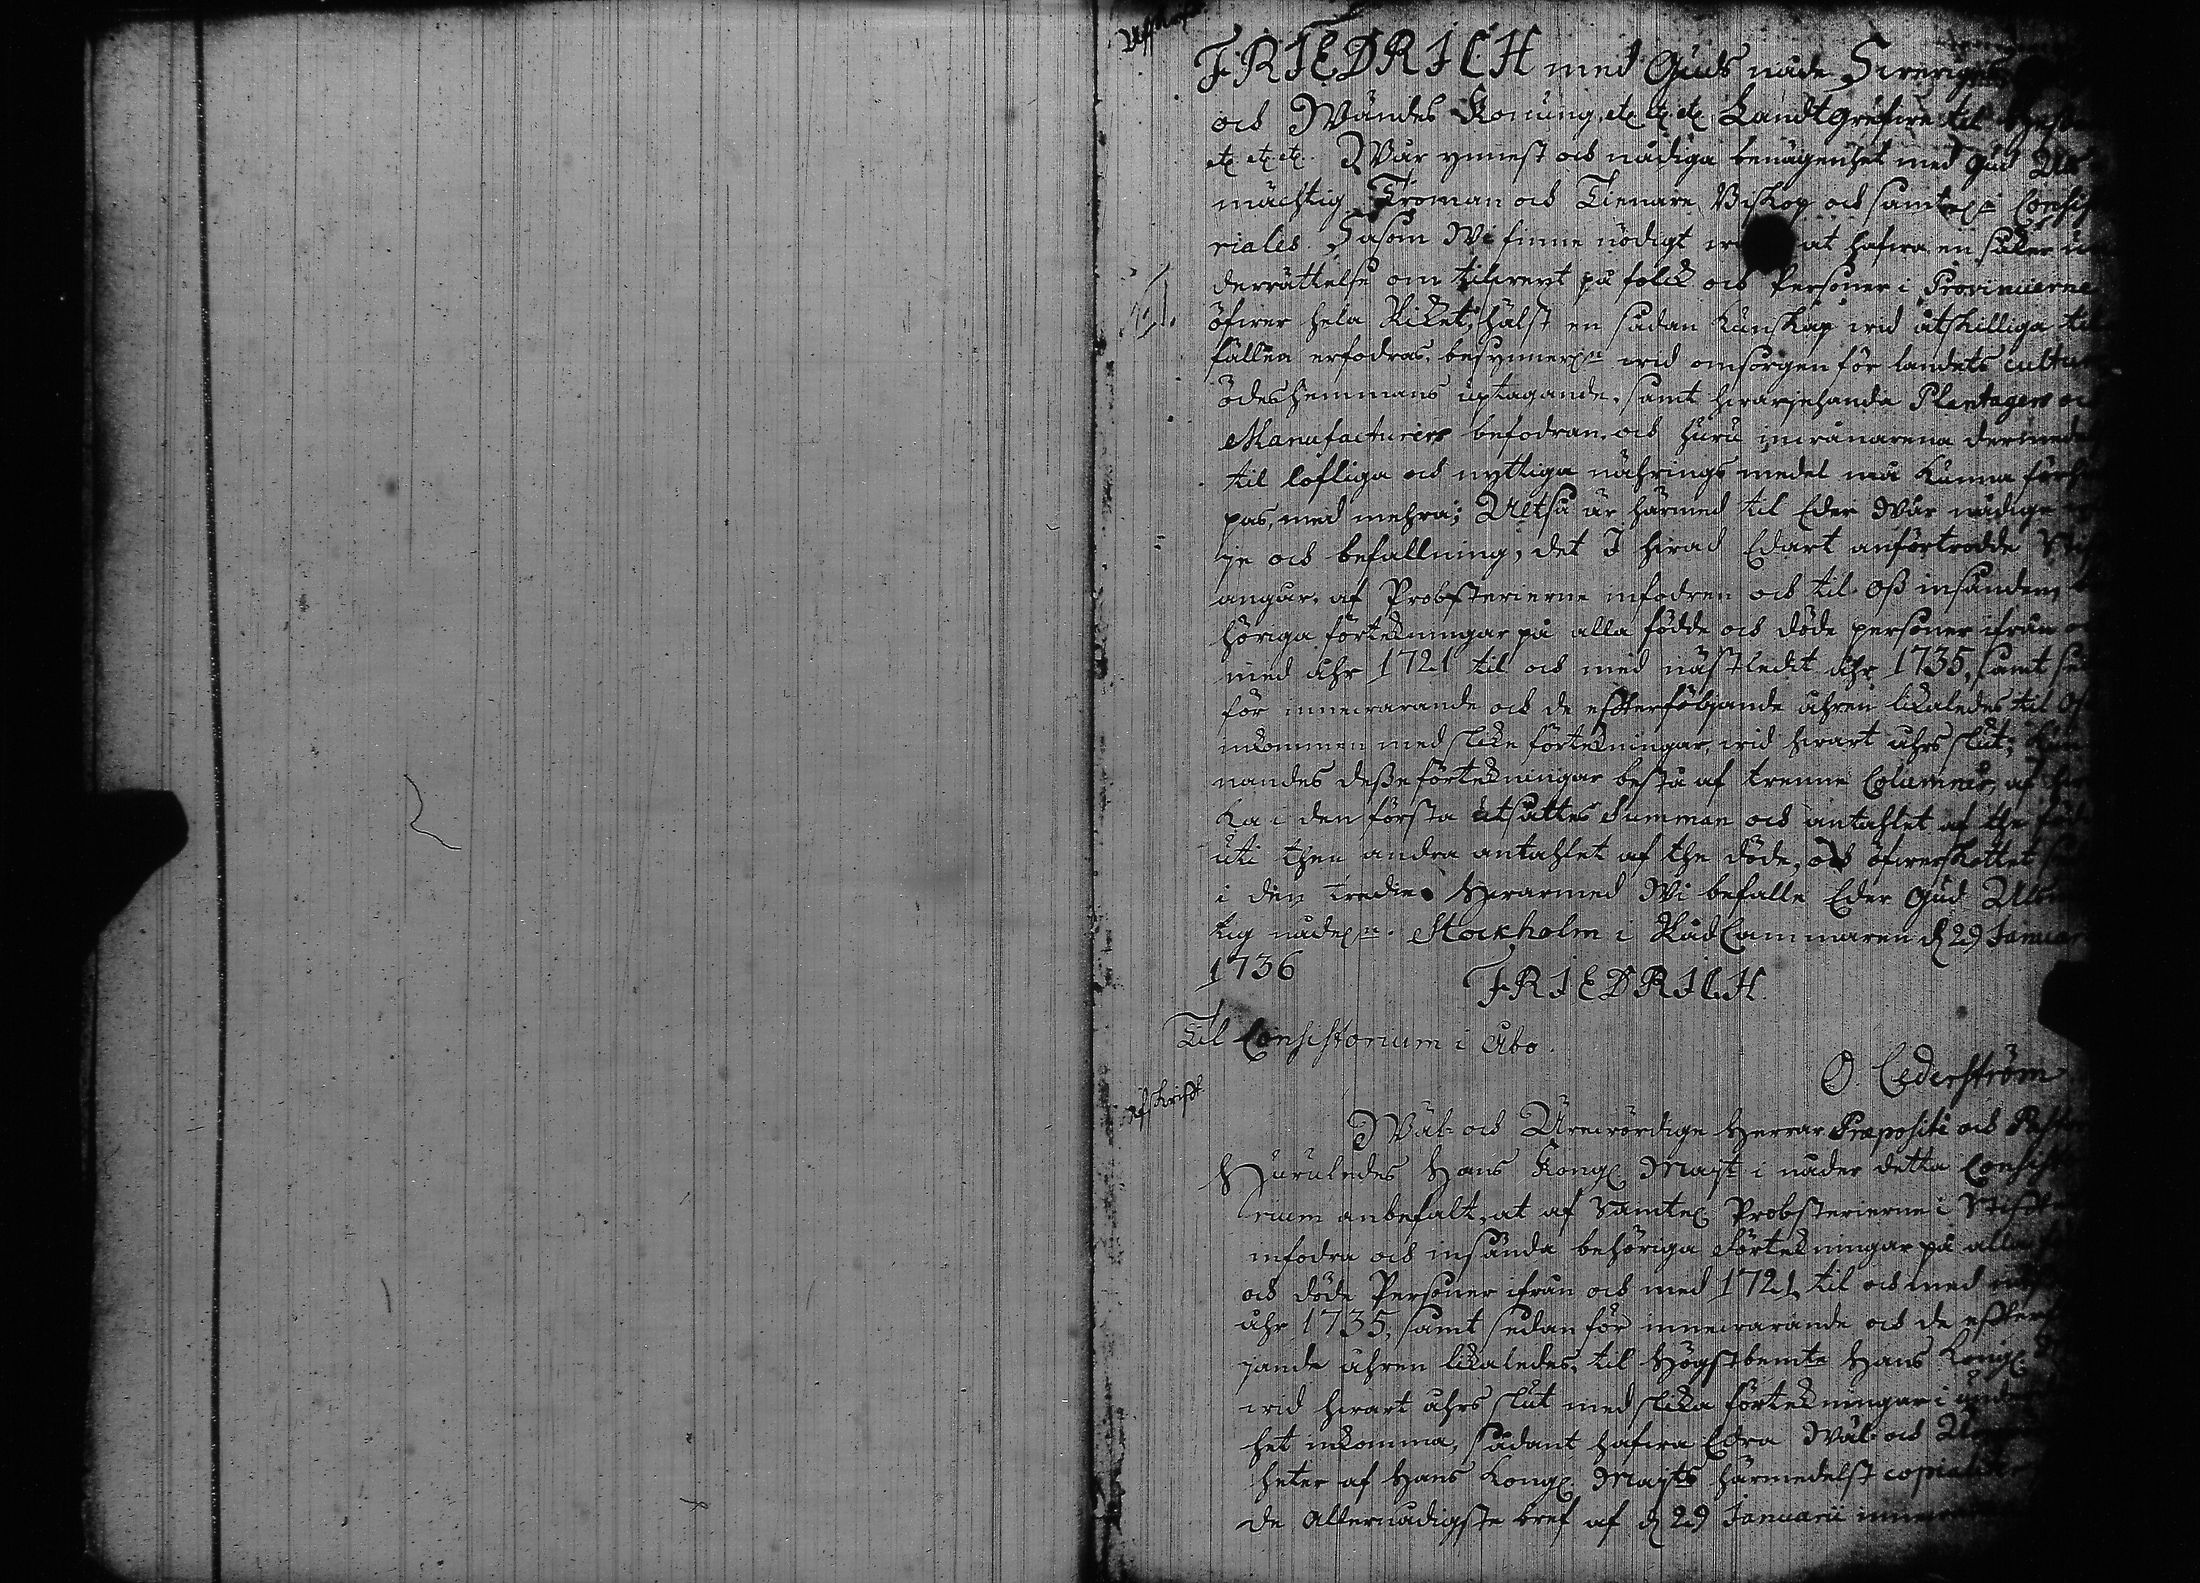 FRIEDRICH med Guds nåde Sweriges
och Wändes Konung, etc etc etc Landtgrefwe til Hessen
etc etc etc. Wår ynnest och nådiga benägenhet med Gud All-
mächtig, Troman och Tienare Biskop och samtel:n Consisto
riales. Såsom Wi finne nödigt at hafwa en säker un
derrättelse om tilwext på folck och Personer i Provincierne
öfwer hela Riket, hälst en sådan kunskap wid åtskilliga til
fällen erfodras, besynnerl:n wid omsorgen för landets cultur
ödeshemmans uptagande, samt hwarjehanda Plantagers och
Manufacturiers befodran, och huru inwånarena dermedelst
til lofliga och nyttiga nährings medel må kunna förhiel
pas, med mehra; Altså är härmed til Eder Wår nådige wil
je och befallning, det I hwad Edart anförtrodde Stift
angår, af Probsterierne infodren och til Oss insänden, be
höriga förtekningar på alla födde och döde personer ifrån och
med åhr 1721 til och med nästledit åhr 1735, samt sedan
för innewarande och de effterföljande åhren likaledes til Oss
inkommen med slike förtekningar, wid hwart åhrs slut; kun
nandes desse förtekningar bestå af trenne Columner, af hwil
ka i den första utsättes Summan och antahlet af the födde
uti then andra antahlet af the döde, och öfwerskottet sedan
i den tredie. Hwarmed Wi befalle Eder Gud Allsmäch
tig nådel:n. Stockholm i RådCammaren d 29 Januarii
1736
FRIEDRICH.
Til Consistorium i Åbo.
O. Cederström
Afskrifft
Wäl- och Ährewördige Herrar Præpositi och Pastores
Huruledes Hans Kongl. Mayt i nåder detta Consisto
rium anbefalt, at af Samtel. Probsterierne i Stifftet
infodra och insända behöriga Förtekningar på alla födde
och döde Personer ifrån och med 1721 til och med nästledit
åhr 1735, samt sedan för innewarande och de efterföl
jande åhren likaledes, til Högstbemte Hans Kongl. Mayt
wid hwart åhrs slut med slika förtekningar i underdånig
het inkomma, sådant hafwa Edra Wäl- och Ährewördig
heter af Hans Kongl. Mayts härmedelst copialiter
de Allernådigste bref af d 29 Januarii innewarande